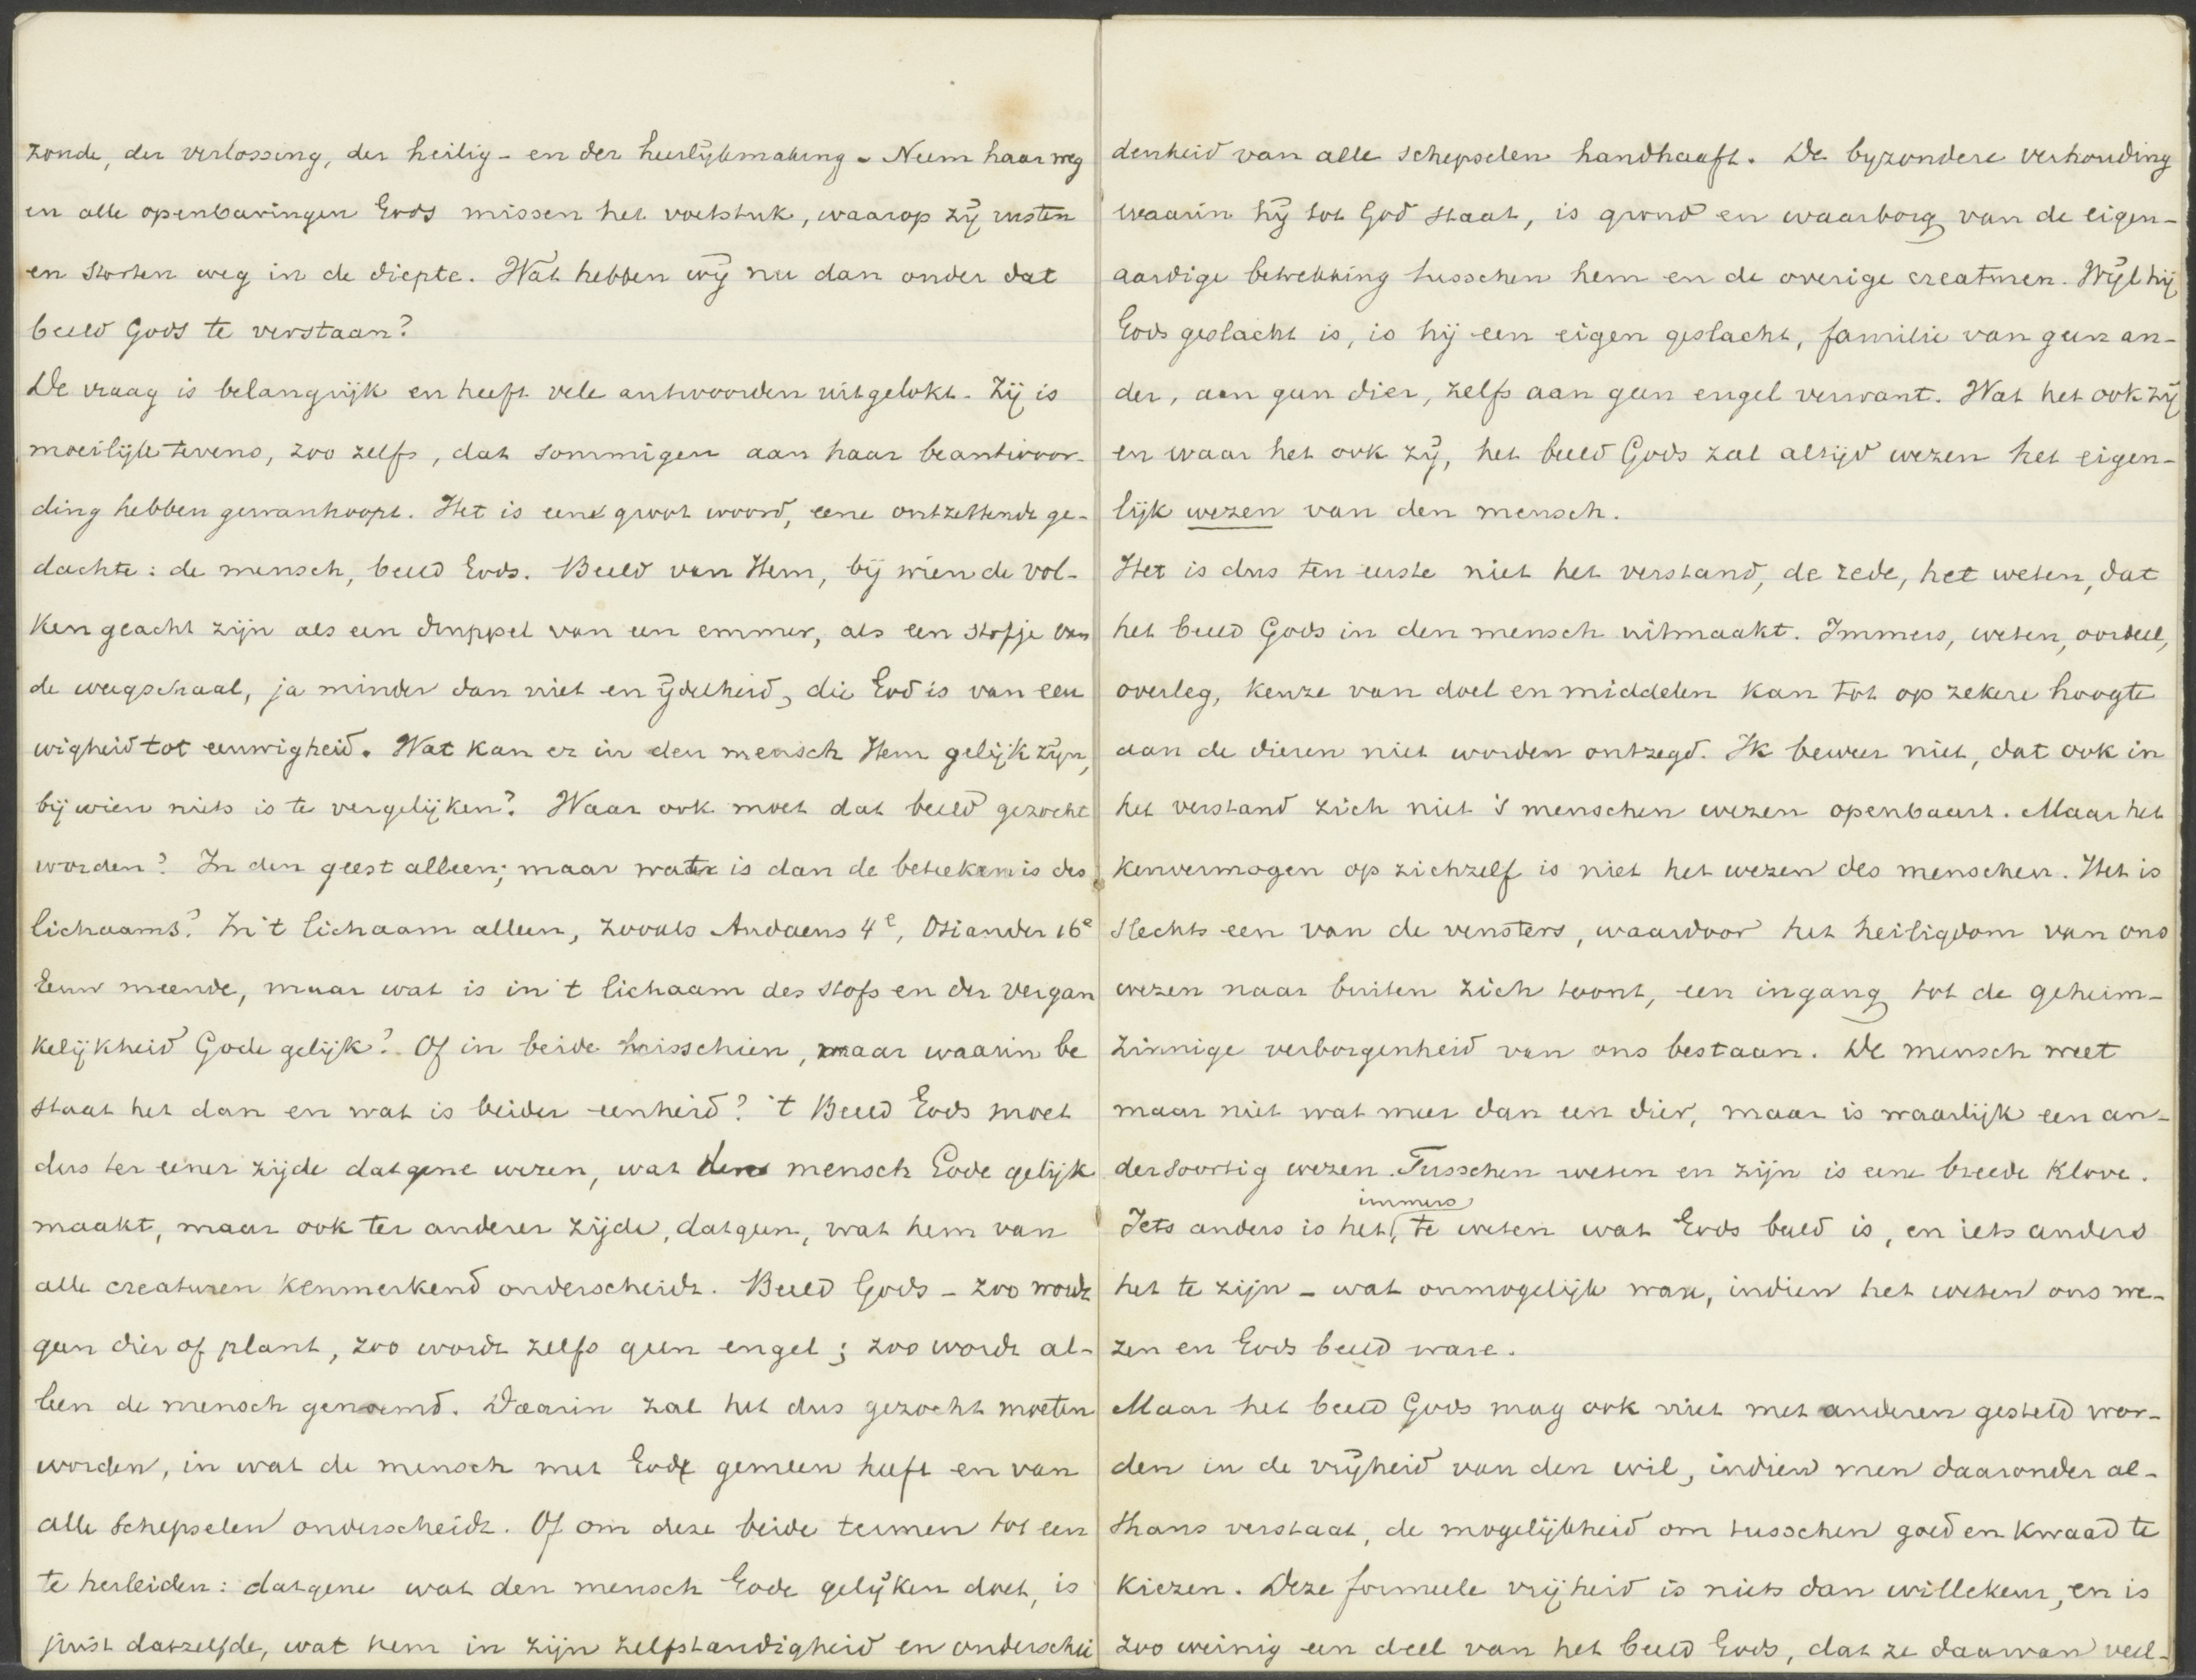 zonde, der verlossing, der heilig- en der heerlijkmaking. Neem haar weg
en alle openbaringen Gods missen het voetstuk, waarop zij rusten
en storten weg in de diepte. Wat hebben wij nu dan onder dat
beeld Gods te verstaan?
De vraag is belangrijk en heeft vele antwoorden uitgelokt. Zij is
moeilijk tevens, zoo zelfs, dat sommigen aan haar beantwoor-
ding hebben gewanhoopt. Het is een groot woord, eene ontzettende ge-
dachte: de mensch, beeld Gods. Beeld van Hem, bij wien de vol-
ken geacht zijn als een druppel van een emmer, als een stofje van
de weegschaal, ja minder dan niet en ijdelheid, die God is van eeu
wigheid tot eeuwigheid. Wat kan er in den mensch Hem gelijk zijn,
bij wien niets is te vergelijken? Waar ook moet dat beeld gezocht
worden? In den geest alleen; maar wat is dan de beteekenis des
lichaams? In 't lichaam alleen, zooals Audaens 4e, Osiander 16e
Eeuw meende, maar wat is in 't lichaam des stofs en der vergan
kelijkheid Gode gelijk? Of in beide misschien, maar waarin be
staat het dan en wat is beider eenheid? 't Beeld Gods moet
dus ter eener zijde datgene wezen, wat den mensch Gode gelijk
maakt, maar ook ter anderer zijde, datgeen, wat hem van
alle creaturen kenmerkend onderscheidt. Beeld Gods - zoo wordt
geen dier of plant, zoo wordt zelfs geen engel; zoo wordt al-
leen de mensch genoemd. Daarin zal het dus gezocht moeten
worden, in wat de mensch met God gemeen heeft en van
alle schepselen onderscheidt. Of om deze beide termen tot een
te herleiden: datgene wat den mensch Gode gelijken doet, is
juist datzelfde, wat hem in zijn zelfstandigheid en onderschei
denheid van alle schepselen handhaaft. De byzondere verhouding
waarin hij tot God staat, is grond en waarborg van de eigen-
aardige betrekking tusschen hem en de overige creaturen. Wijl hij
Gods geslacht is, is hij een eigen geslacht, familie van geen an-
der, aan geen dier, zelfs aan geen engel verwant. Wat het ook zij
en waar het ook zij, het beeld Gods zal altijd wezen het eigen-
lijk wezen van den mensch.
Het is dus ten eerste niet het verstand, de rede, het weten, dat
het beeld Gods in den mensch uitmaakt. Immers, weten, oordeel,
overleg, keuze van doel en middelen kan tot op zekere hoogte
aan de dieren niet worden ontzegd. Ik beweer niet, dat ook in
het verstand zich niet 's menschen wezen openbaart. Maar het
kenvermogen op zichzelf is niet het wezen des menschen. Het is
slechts een van de vensters, waardoor het heiligdom van ons
wezen naar buiten zich toont, een ingang tot de geheim-
zinnige verborgenheid van ons bestaan. De mensch weet
maar niet wat meer dan een dier, maar is waarlijk een an-
dersoortig wezen. Tusschen weten en zijn is eene breede klove.
immers
Iets anders is het, te weten wat Gods beeld is, en iets anders
het te zijn - wat onmogelijk ware, indien het weten ons we-
zen en Gods beeld ware.
Maar het beeld Gods mag ook niet met anderen gesteld wor-
den in de vrijheid van den wil, indien men daaronder al-
thans verstaat, de mogelijkheid om tusschen goed en kwaad te
kiezen. Deze formeele vrijheid is niets dan willekeur, en is
zoo weinig een deel van het beeld Gods, dat ze daarvan veel-